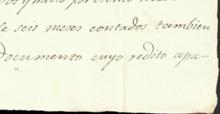 de seis meses contados tambien
Documento cuyo redito apa-